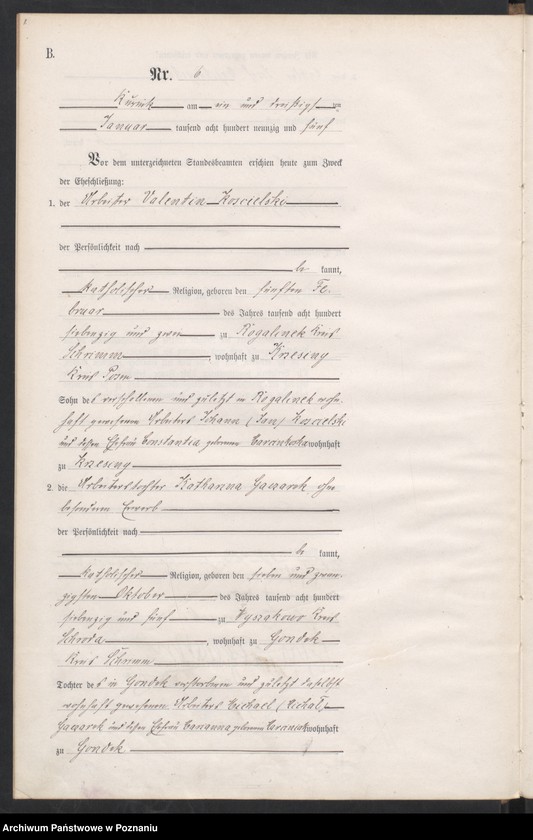 B.
Nr. 6
Kurnik am ein und dreißigsten
Januar tausend acht hundert neunzig und fünf
Vor dem unterzeichneten Standesbeamten erschien heute zum Zweck
der Eheschließung:
1. der Arbeiter Valentin Koscielski
der Persönlichkeit nach
be kannt,
katholischer Religion, geboren den fünften Fe-
bruar des Jahres tausend acht hundert
siebenzig und zwei zu Rogalinek Kreis
Schrimm, wohnhaft zu Krzesiny
Kreis Posen
Sohn des verschollenen und zuletzt in Rogalinek wohn-
haft gewesenen Arbeiters Johann (Jan) Koscielski
und dessen Ehefrau Constantia geborenen wohnhaft
zu Krzesiny
2. die Arbeiterstochter Katharina ohne
besonderen Erwerb
der Persönlichkeit nach
be kannt,
katholischer Religion, geboren den sieben und zwan-
zigsten Oktober des Jahres tausend acht hundert
siebenzig und fünf zu Kreis
Schroda, wohnhaft zu Gondek
Kreis Schrimm
Tochter des in Gondek verstorbenen und zuletzt daselbst
wohnhaft gewesenen Arbeiters Michael
und dessen Ehefrau geborenen wohnhaft
zu Gondek
Archiwum Państwowe w Poznaniu